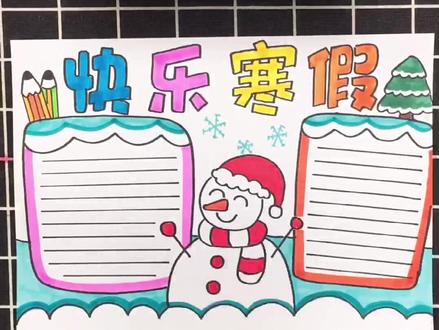 快乐寒假